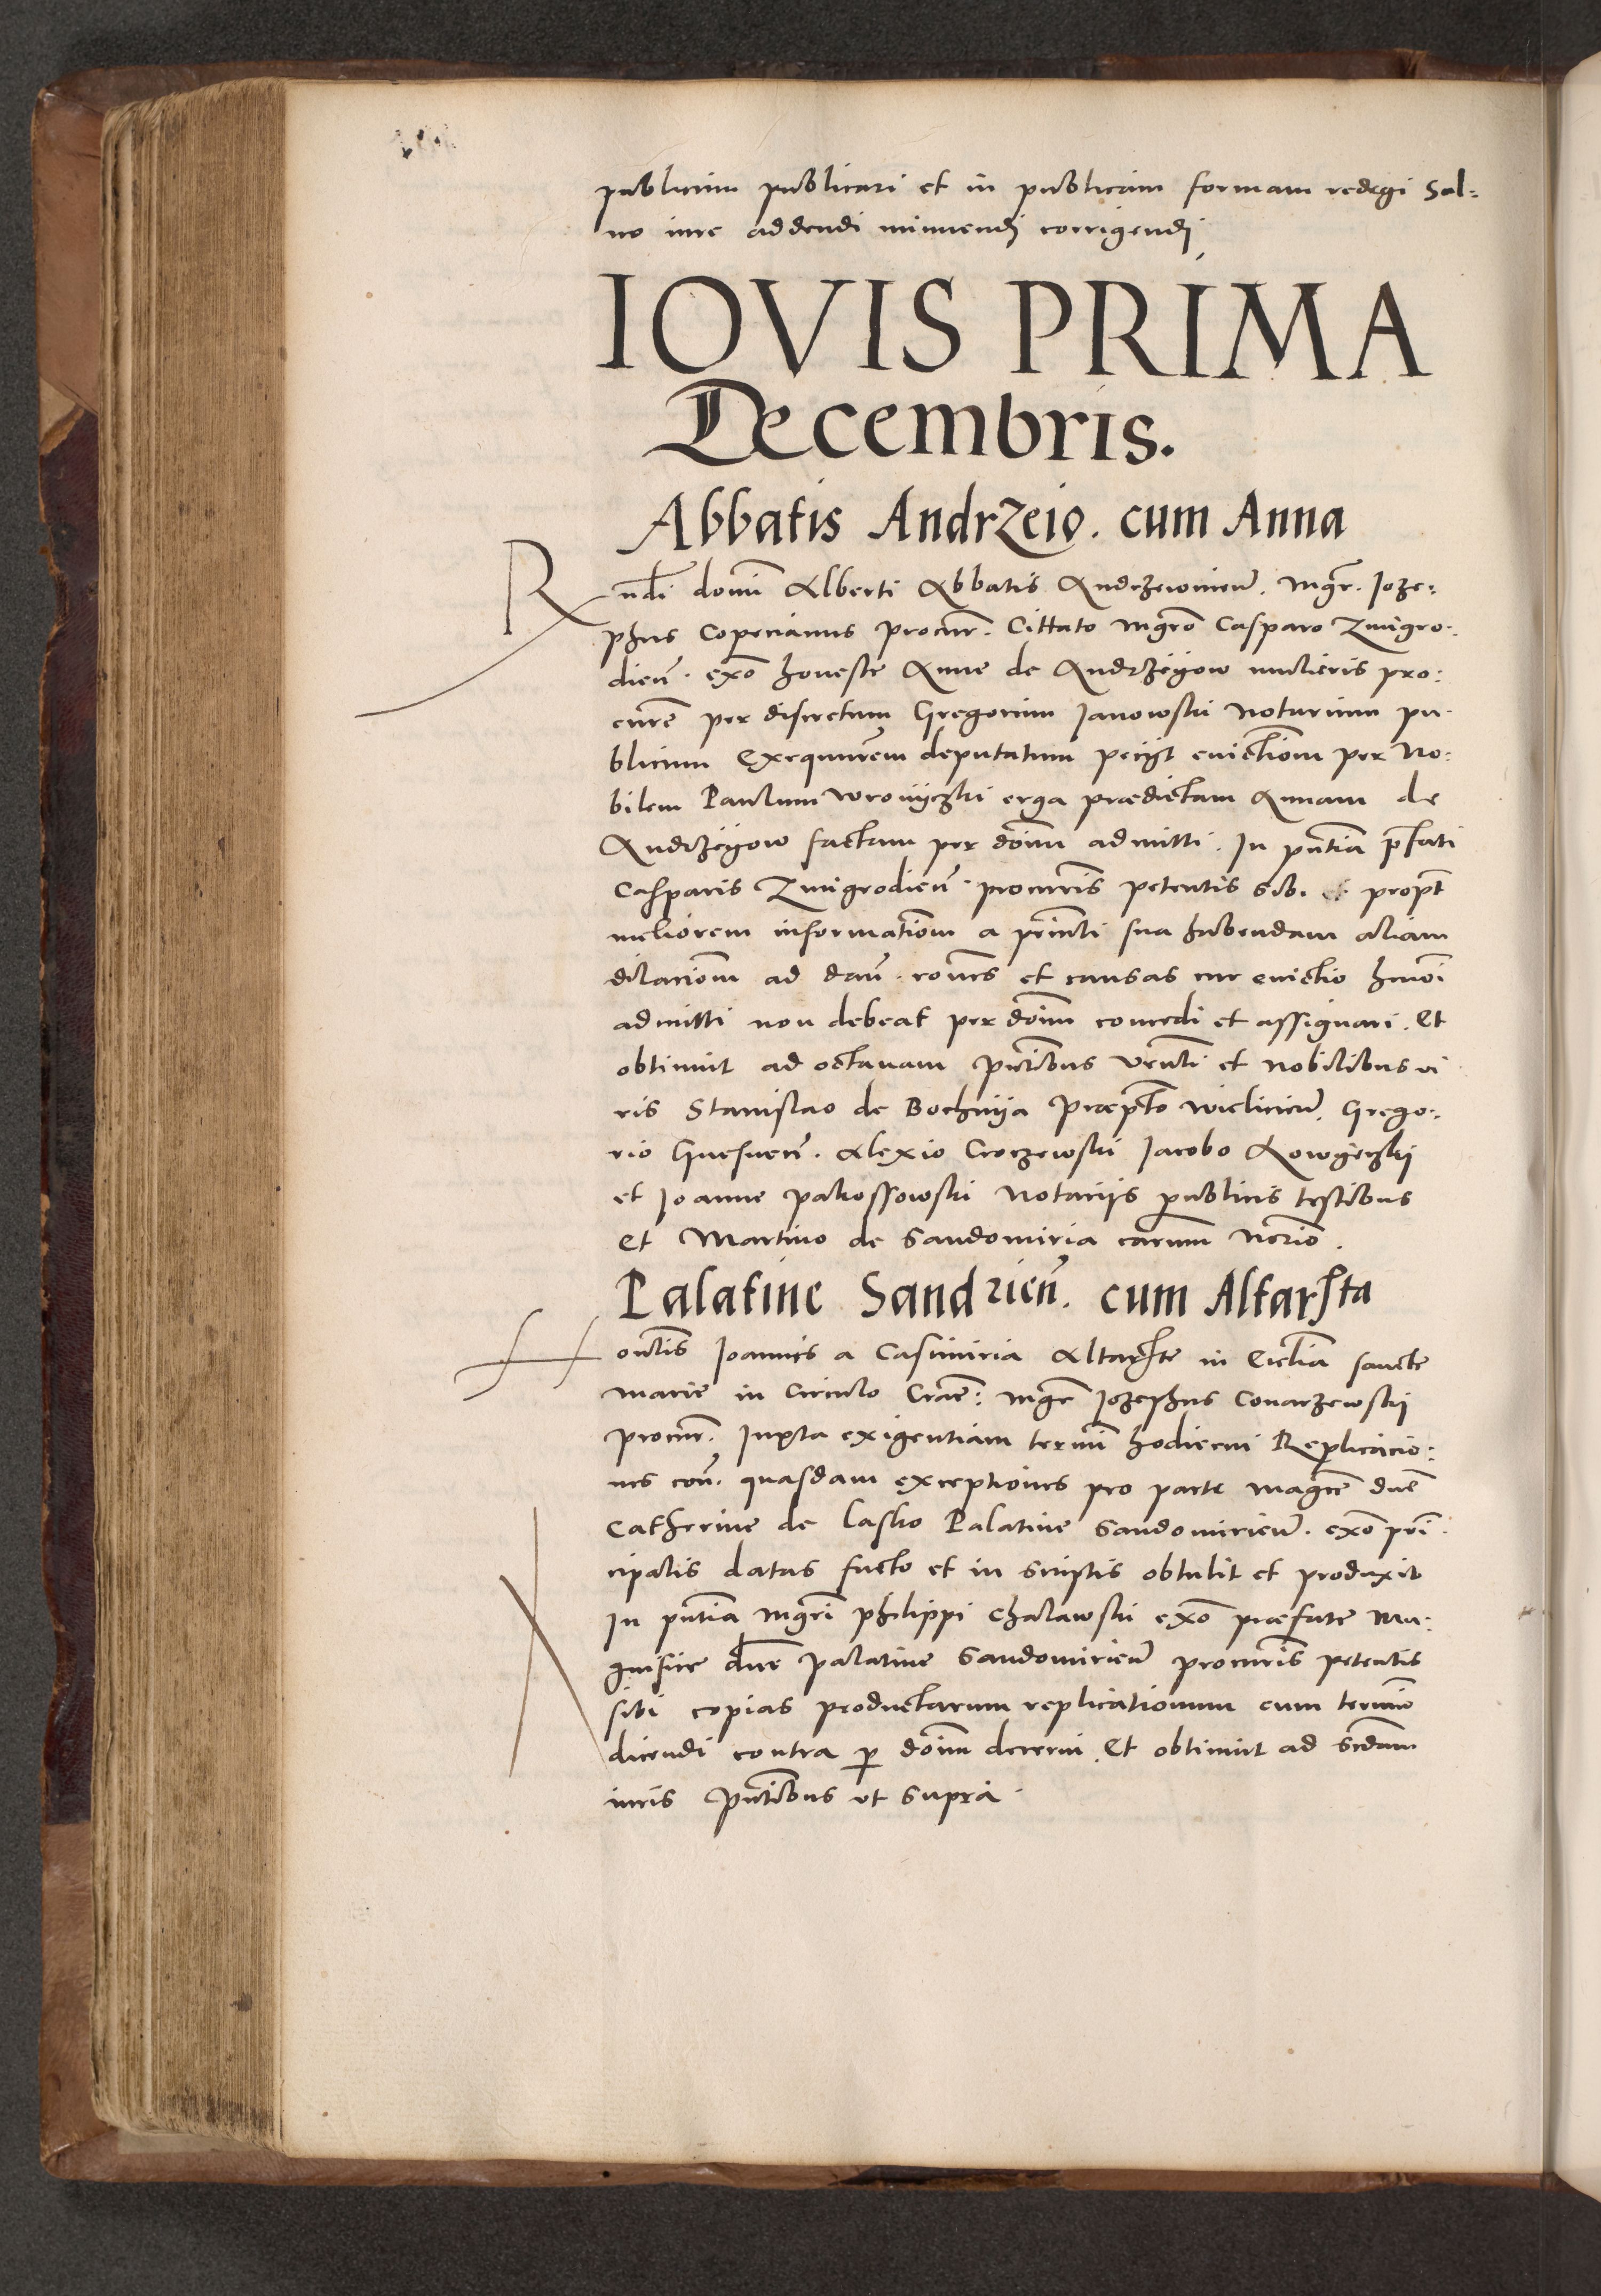 publicum publicari et in publicam formam redegi Sal:
uo iure addendi minuendj corrigendj
IOVIS PRIMA
Decembris.
Abbatis Andrzeio. cum Anna
Rndi domi Alberti Abbatis Andrzeiowien. Mgr. Joze:
phus Copecianus procur. Cittato Mgro Casparo Zmigro:
dien. exo honeste Anne de Andrzeyow mulieris pro:
cure per discretum Gregorium Janowski Notarium pu
blicum Exequutem deputatum pecijt euictiom per No:
bilem Paulum Wronijczki erga praedictam Annam de
Andrzeyow factam per domi admitti. In pntia prfati
Casparis Zmigrodien. procuris petentis sibi propt
meliorem informatiom a princti sua habendam aliam
dilaciom ad dan. rones et causas cur euictio hmoi
admitti non debeat per domi concedi et assignari. Et
obtinuit ad octauam pntibus Venli et Nobilibus vi
ris Stanislao de Bochnija Praepto Wielicien. Grego:
rio Gnesnen. Alexio Croczewski Jacobo
et Joanne pakossowski Notarijs publicis testibus
Et Martino de Sandomiria carum Norio.
Palatine Sandrien. cum Altarsta
Honlis Joannis a Casimiria Altarste in Ecclia sancte
marie in Circulo Crac: Mgr Jozephus Conarzewskij
procur. Juxta exigentiam termi hodierni Replicacio:
nes con. quasdam exceptiones pro parte magce dne
Catherine de Lasko Palatine Sandomirien. exo prin
cipalis datas facto et in scriptis obtulit et produxit
In pntia mgri philippi Chalawski exo praefate Ma:
gnifice dne palatine Sandomirien procuris petentis
sibi copias productarum replicationum cum termio
dicendi contra p domi decerni. Et obtinuit ad scdam
iuris pntibus vt supra.